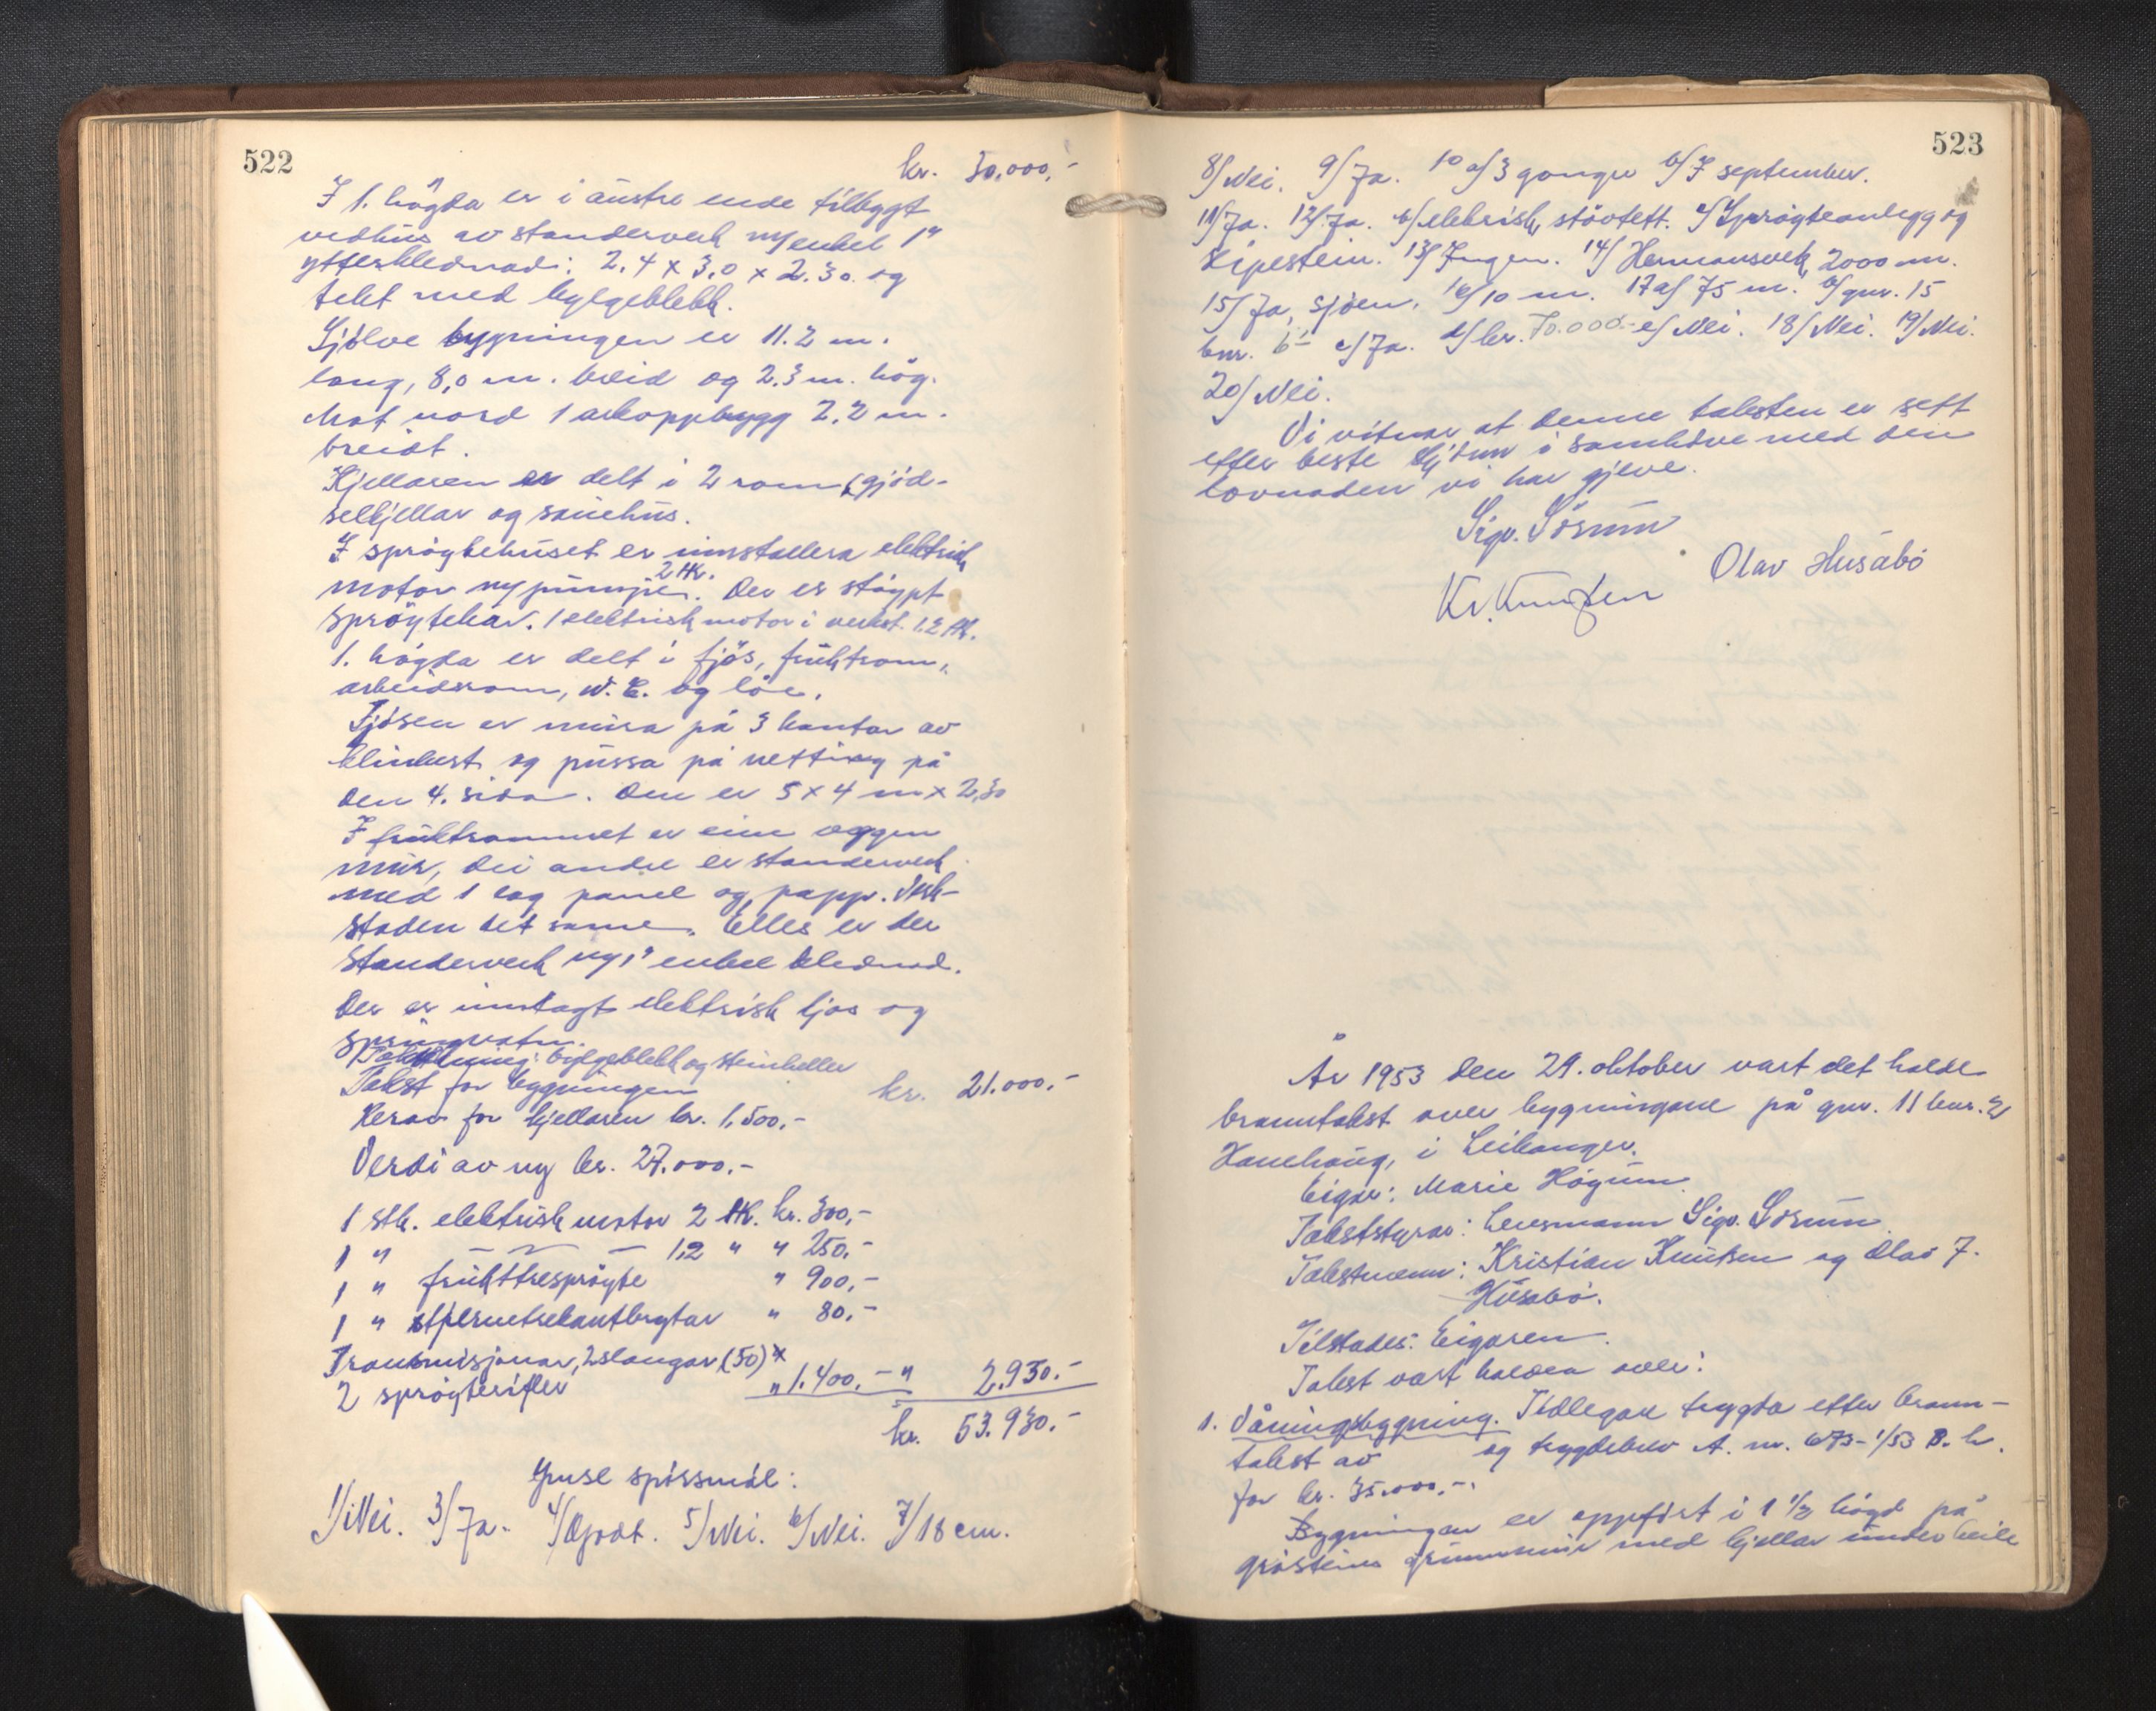 522
kr. 30.000,-
I 1. högda er i austre ende tilbygt
vedhus av standerverk m/enkel 1"
ytterklednad: 2.4 x 3,0 x 2.30 og
tekt med bylgeblekk.
Sjölve bygningen er 11.2 m.
lang, 8,0 m. breid og 2.3 m. hög.
Mot nord 1 arkoppbygg 2,2 m.
breidt.
Kjellaren er delt i 2 rom, gjöd-
selkjellar og sauehus.
I spröytehuset er innstallera elektrisk
motor m/pumpe 2 Hk. Der er stöypt
spröytekar. 1 elektrisk motor i verkst. 1,2 Hk.
1. högda er delt i fjös, fruktrom,
arbeidsrom, W.C. og löe.
Fjösen er mura på 3 kantar av
klinkest. og pussa på netting på
den 4. sida. Den er 5 x 4 m x 2,30
I fruktrommet er ein veggen
mur, dei andre er standerverk
med 1 lag panel og papp. Verk-
staden det same. Elles er der
standerverk m/1" enkel klednad.
Der er innlagt elektrisk ljos og
springvatn.
Taktekning: bylgeblekk og steinheller
Takst for bygningen kr. 21.000.-
Herav for kjellaren kr. 1.500.-
Verdi av ny kr. 27.000.-
1 stk. elektrisk motor 2 Hk. kr. 300,-
1 " — — 1,2 " " 250,-
1 " frukttresprøyte " 900,-
1 " " 80.-
Transmisjonar, 2 slangar (50) x
2 spröyterifler " 1.400.- " 2.930.-
kr. 53.930.-
Ymse spörsmål:
1/Nei. 3/Ja. 4/Godt. 5/Nei. 6/Nei. 7/18 cm.
523
8/Nei. 9/Ja. 10 a/3 gonger b/I september.
11/Ja. 12/Ja. b/elektrisk, stövtett. c/Spröyteanlegg og
slipestein. 13/Ingen. 14/Hermansverk, 2000 m.
15/Ja, sjöen. 16/10 m. 17 a/75 m. b/gnr. 15
bnr. 6 c/Ja. d/kr. 70.000.- e/Nei. 18/Nei. 19/Nei.
20/Nei.
Vi vitnar at denne taksten er sett
etter beste skjönn i samhöve med den
lovnaden vi har gjeve.
Sigv. Sörum
Olav Husabö
Kr. Knutsen
År 1953 den 29. oktober vart det halde
branntakst over bygningane på gnr. 11 bnr. 2
Hanehaug, i Leikanger.
Eigar: Marie Högum.
Takststyrar: Lensmann Sigv. Sörum.
Takstmenn: Kristian Knutsen og Olav J.
Husabö.
Tilstades: Eigaren.
Takst vart halden over:
1. Våningsbygning. Tidlegare trygda etter brann-
takst av og trygdebrev A. nr. 673-1/53 B. h.
for kr. 35.000,-.
Bygningen er oppfört i 1 1/2 högd på
gråsteins grunnmur med kjellar under heile